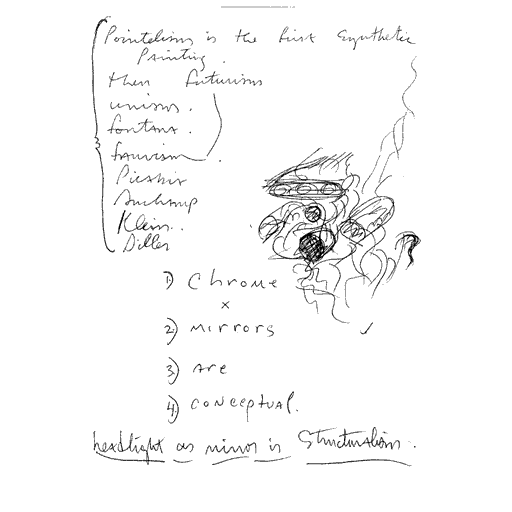 Pointelism is the first synthetic
Painting.
then futurism
unism.
fontana.
fauvism
Picabia
Duchamp
Klein.
Diller
1) Chrome
x
2) Mirrors
3) Are
4) conceptual.
headlight as mirror is Structuralism.